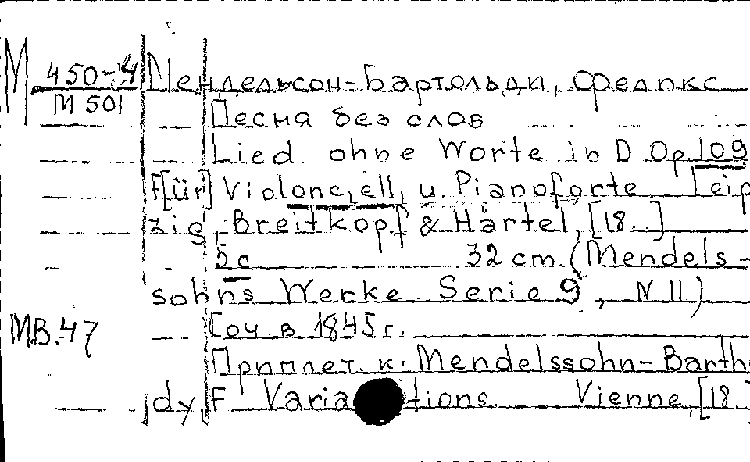 М 450-4 Мендельсон-Бартольди, Феликс
М 501 Песня без слов
Lied ohne Worte in D Op 109
F[ür] Violoncell u. Pianoforte Leip
zig, Breitkopf & Härtel, [18..]
5 c 32 cm. (Mendels-
sohns Werke Serie 9, N 11)
МВ.47 Соч в 1845 г.
Приплет. к: Mendelssohn-Barth
dy F Variations Vienne, [18